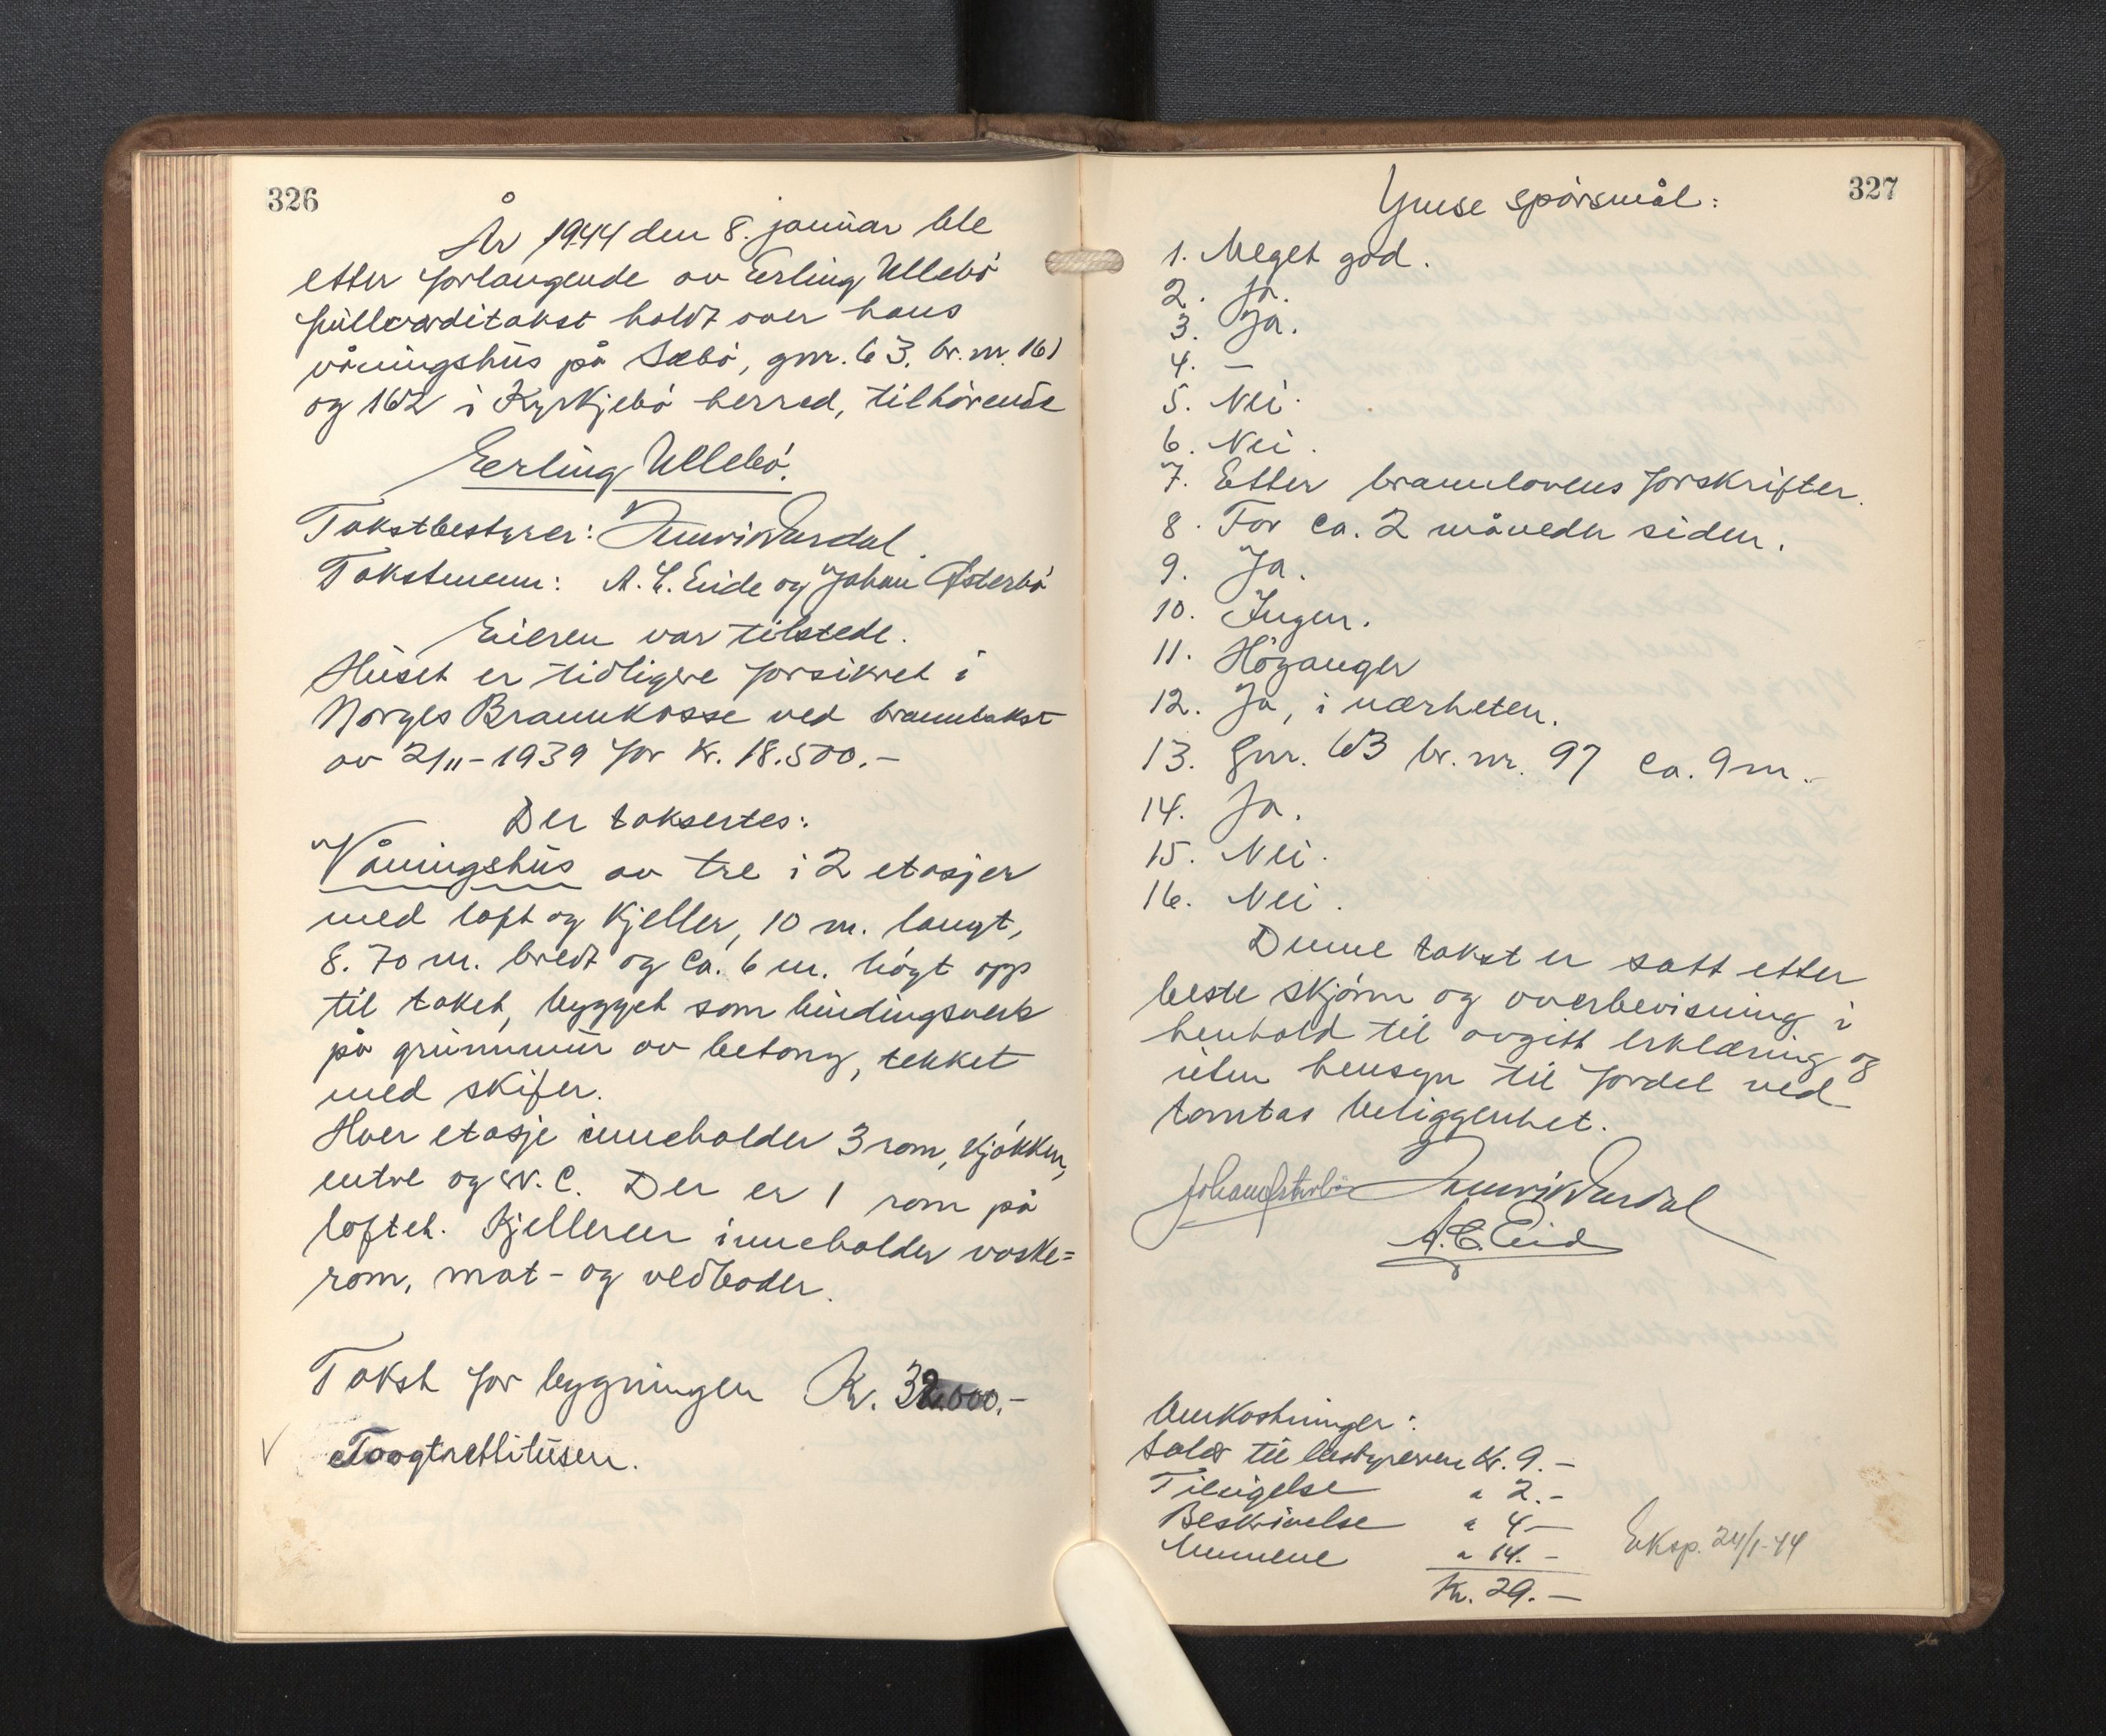 326
År 1944 den 8. januar ble
etter forlangende av Erling Ullebö
fullverditakst holdt over hans
våningshus på Sæbö, gnr. 63. br. nr. 161
og 162 i Kyrkjebö herred, tilhörende
Erling Ullebö.
Takstbestyrer:
Takstmenn: A. E. Eide og Johan Østerbö
Eieren var tilstede.
Huset er tidligere forsikret i
Norges Brannkasse ved branntakst
av 2/11-1939 for kr. 18.500.-
Der taksertes:
Våningshus av tre i 2 etasjer
med loft og kjeller, 10 m. langt,
8.70 m. bredt og ca. 6 m. högt opp
til taket, bygget som bindingsverk
på grunnmur av betong, tekket
med skifer.
Hver etasje inneholder 3 rom, kjökken,
entre og W.C. Der er 1 rom på
loftet. Kjelleren inneholder vaske=
rom, mat- og vedboder.
Takst for bygningen Kr. 32.000.-
Toogtrettitusen.
327
Ymse spörsmål:
1. Meget god.
2. Ja.
3. Ja.
4. —
5. Nei.
6. Nei.
7. Etter brannlovens forskrifter.
8. For ca. 2 måneder siden.
9. Ja.
10. Ingen.
11. Höyanger
12. Ja, i nærheten.
13. Gnr. 63 br. nr. 97 ca. 9 m.-
14. Ja.
15. Nei.
16. Nei.
Denne takst er satt etter
beste skjönn og overbevisning i
henhold til avgitt erklæring og
uten hensyn til fordel ved
tomtas beliggenhet.
Johan Østerbö
A. E. Eide
Omkostninger:
Salær til bestyreren Kr. 9.-
Tilsigelse " 2.-
Beskrivelse " 4-
Mennene " 14.-
Kr. 29.-
Eksp. 24/1-44